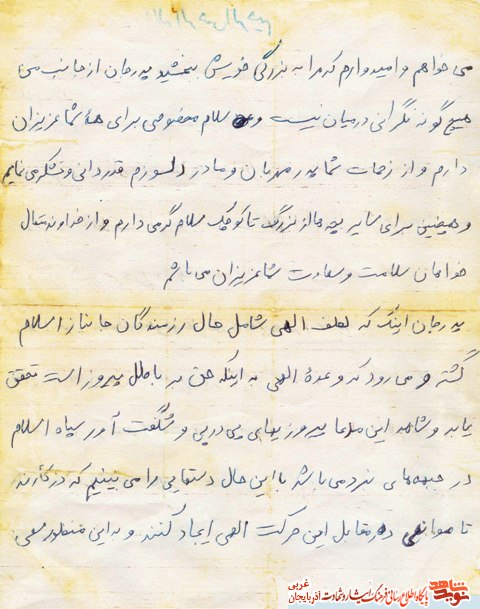 می خواهم و امیدوارم که مرا به بزرگی خویش ببخشید پدرجان از جانب من
هیچ گونه نگرانی در میان نیست و سلام مخصوصی برای همهٔ شما عزیزان
دارم و از زحمات شما پدر مهربان و مادر دلسوزم قدردانی و تشکر می نمایم
و همچنین برای سایر بچه ها از بزرگ تا کوچک سلام گرمی دارم و از خداوند متعال
خواهان سلامت و سعادت شما عزیزان می باشم
پدرجان اینک که لطف الهی شامل حال رزمندگان جانباز اسلام
گشته و می رود که وعدهٔ الهی به اینکه حق بر باطل پیروز است تحقق
یابد و شاهد این مدعا پیروزیهایی پی در پی و شگفت آور سپاه اسلام
در جبهه های نبرد می باشد با این حال دستهایی را می بینیم که در کارند
تا موانعی در مقابل این حرکت الهی ایجاد کنند و به این منظور سعی
نوید شاهد
پایگاه اطلاع رسانی فرهنگ ایثار و شهادت آذربایجان غربی